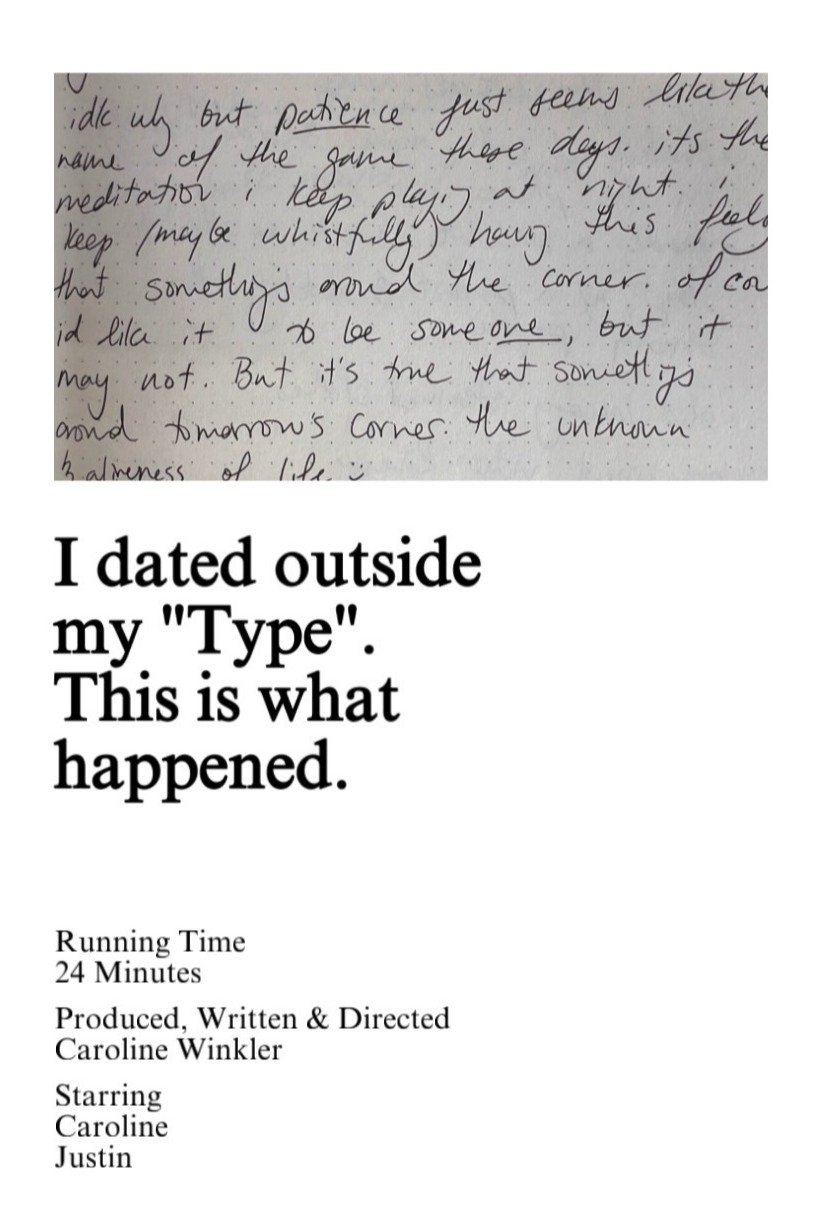 idk why but patience just seems like the
name of the game these days. its the
meditation i keep playing at night. i
keep (maybe whistfully) having this
that something's around the corner. of
id like it to be someone, but it
may not. But it's true that something's
around tomorrow's corner. the unknown
aliveness of life :)
I dated outside
my "Type".
This is what
happened.
Running Time
24 Minutes
Produced, Written & Directed
Caroline Winkler
Starring
Caroline
Justin